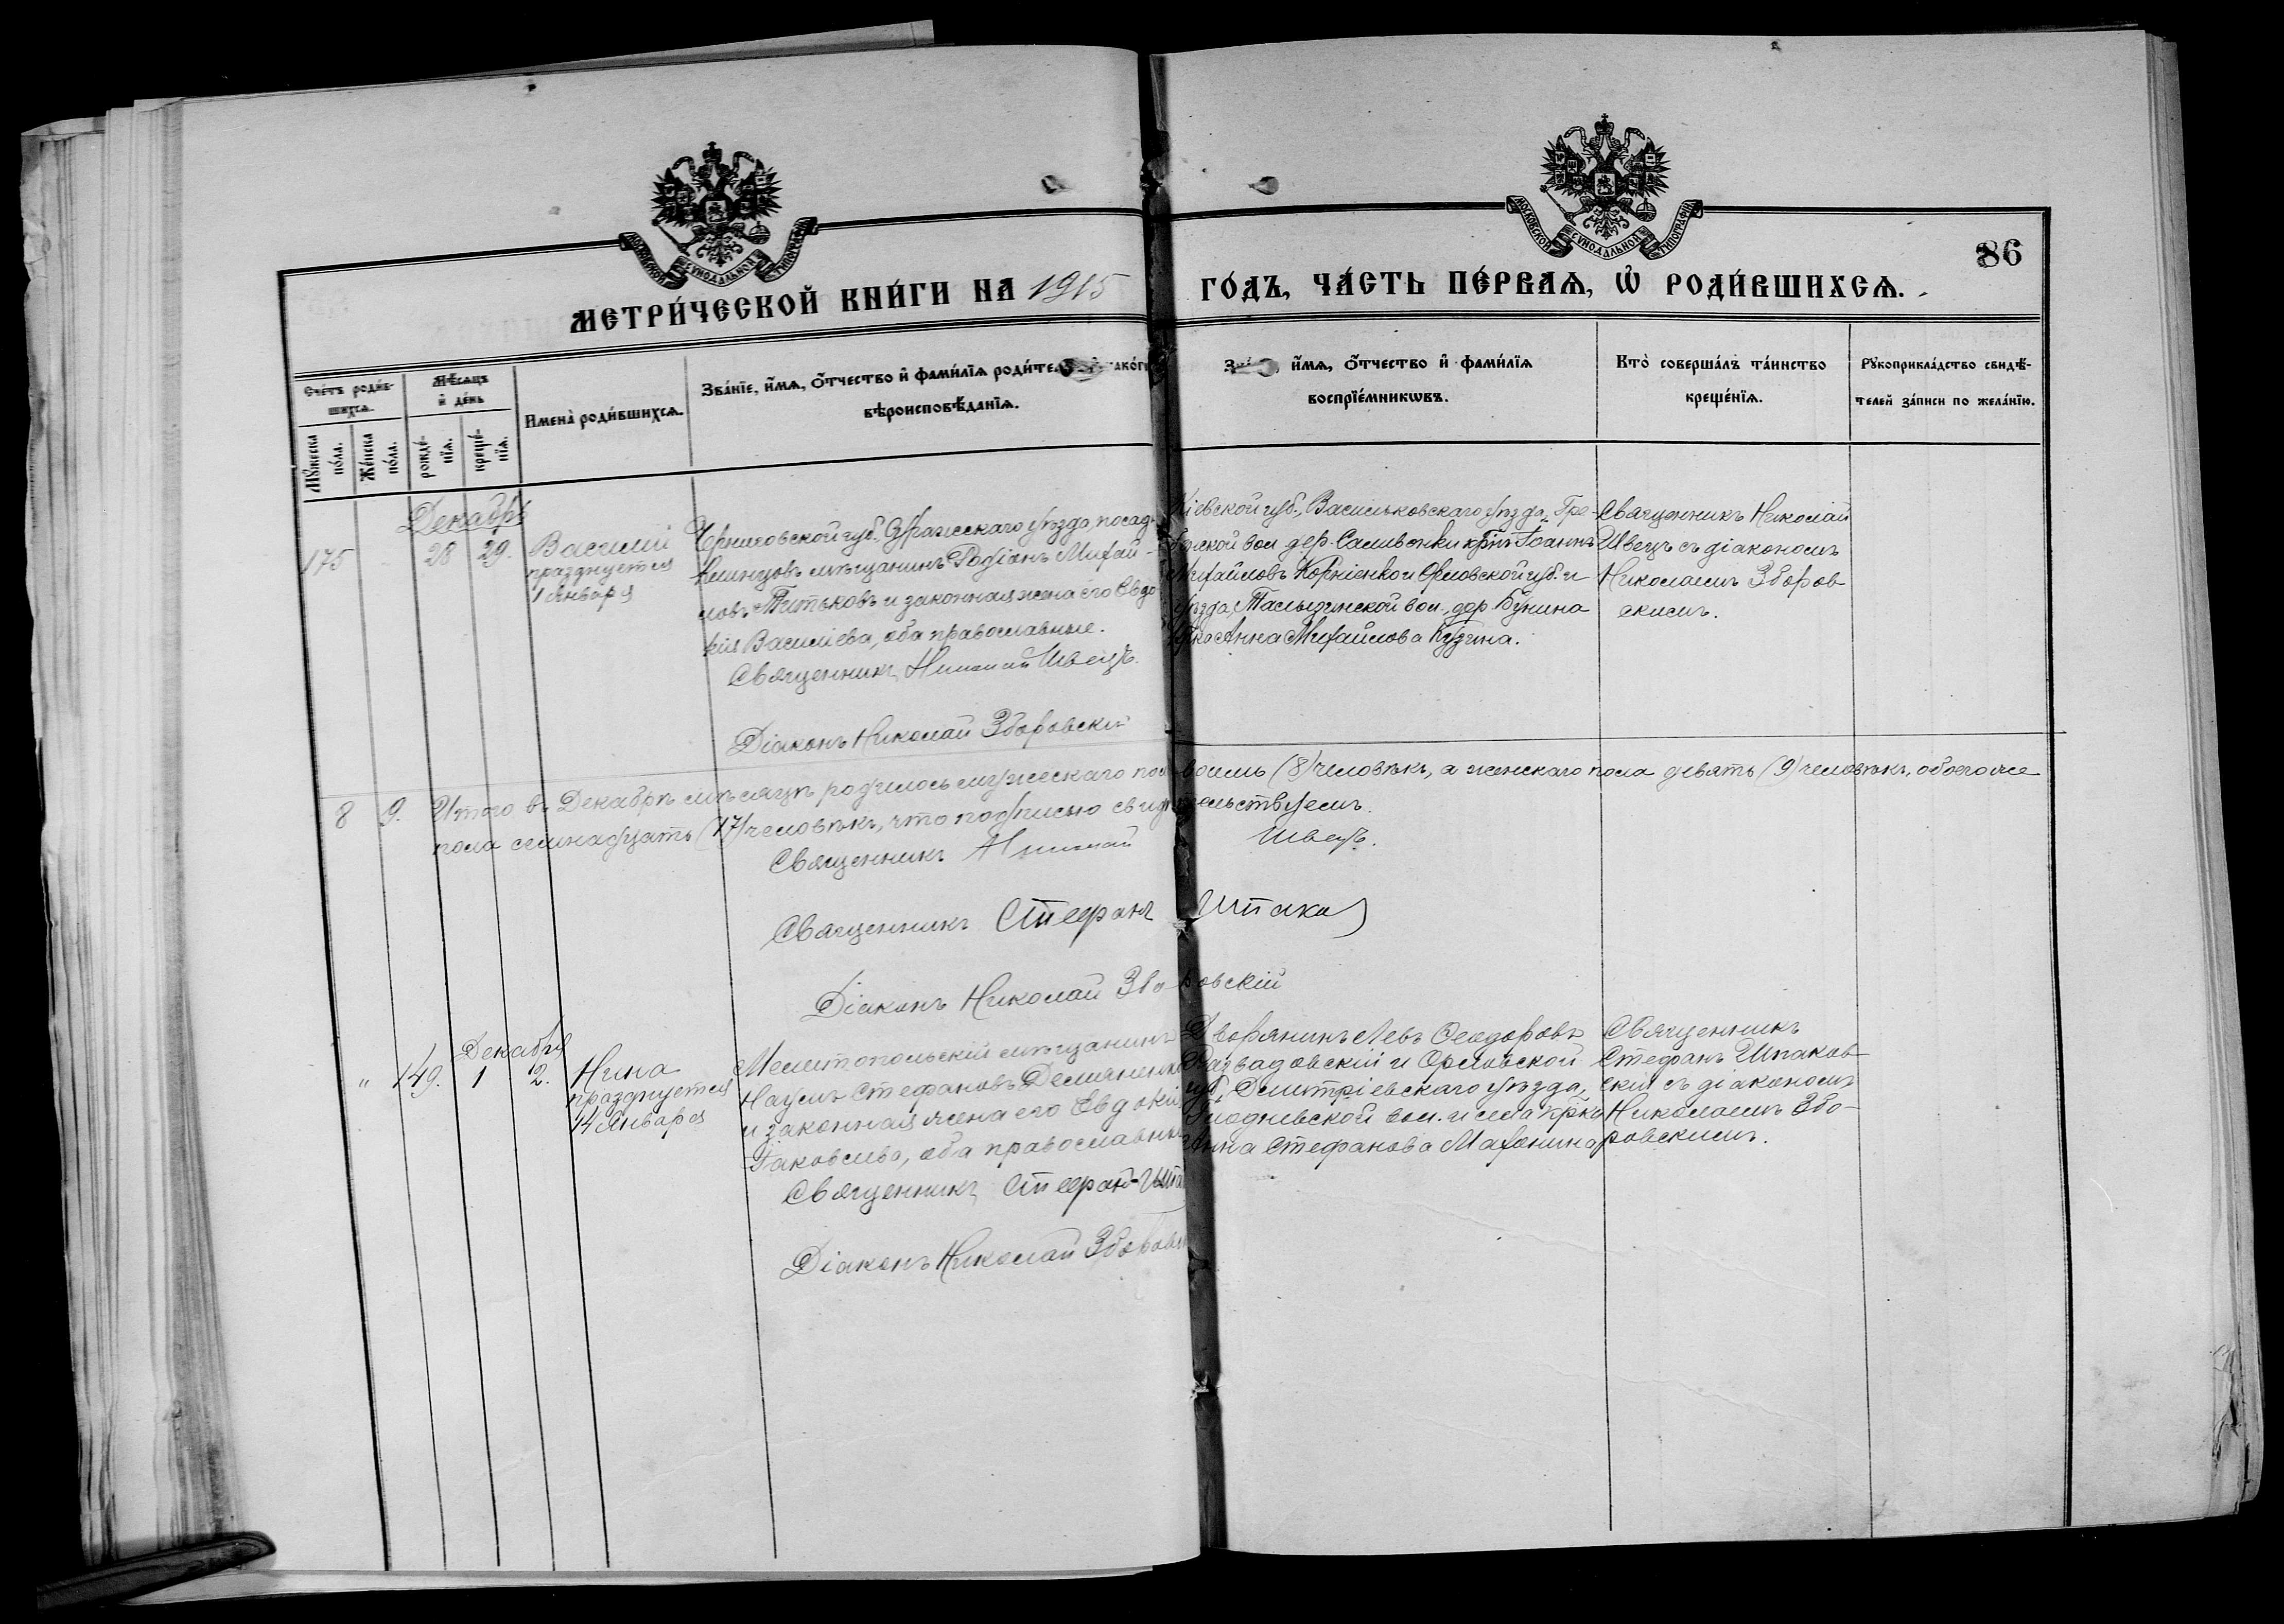 МОСКОВСКОЙ СѴНОДАЛЬНОЙ ТИПОГРАФІИ
МОСКОВСКОЙ СѴНОДАЛЬНОЙ ТИПОГРАФІИ
86
МЕТРИ́ЧЕСКОЙ КНИ́ГИ НА 1915 ГО́ДЪ, ЧА́СТЬ ПЕ́РВАѦ, Ѡ РОДИ́ВШИХСѦ.
Сче́тъ роди́в-
шихсѧ.
Мѹ́жеска по́ла.
Же́нска по́ла.
Мѣ́сѧцъ
и де́нь
рожде́-
нїѧ.
креще́-
нїѧ.
Имена̀ роди́вшихсѧ.
Зва́нїе, и́мѧ, о́тчество и фами́лїѧ роди́те
вѣроисповѣ́данїѧ.
и́мѧ, о́тчество и фами́лїѧ
воспрїе́мникѡвъ.
Кто̀ соверша́лъ та́инство
креще́нїѧ.
Рѹкоприкла́дство свидѣ́-
телей за́писи по жела́нїю.
Декабрь
175
28
29.
Василій
празднуется
1 Января
Черниговской губ. Суражскаго уѣзда посад.
Клинцовъ мѣщанинъ Родіонъ Михай-
ловъ Титьковъ и законная жена его Евдо
кія Василіева, оба православные.
Священникъ Николай Швецъ.
Діаконъ Николай Зборовскій
Кіевской губ., Васильковскаго уѣзда, Гре-
бенской вол. дер. Саливонки крнъ Іоаннъ
Михайловъ Корніенко и Орловской губ. и
уѣзда, Талызинской вол., дер. Бунина
Анна Михайлова Кузина.
Священникъ Николай
Швецъ съ діакономъ
Николаемъ Зборов-
скимъ.
8
9.
Итого въ Декабрѣ мѣсяцѣ родилось мужескаго пола восемь (8) человѣкъ, а женскаго пола девять (9) человѣкъ, обоего же
пола семнадцать (17) человѣкъ, что подписью свидѣтельствуемъ.
Священникъ Николай Швецъ.
Священникъ Стефанъ Шпаков
Діаконъ Николай Зборовскій
Декабрь
"
149.
1
2.
Нина
празднуется
14 Января
Мелитопольскій мѣщанинъ
Наумъ Стефановъ Демяненко
и законная жена его Евдокія
Іаковлева, оба православные
Священникъ Стефанъ Шпа
Діаконъ Николай Зборовск
Дворянинъ Левъ Ѳеодоровъ
Развадовскій и Орловской
губ., Дмитріевскаго уѣзда,
Глодневской вол. и села крка
Анна Стефанова Махонина
Священникъ
Стефанъ Шпаков-
скій съ діакономъ
Николаемъ Збо-
ровскимъ.